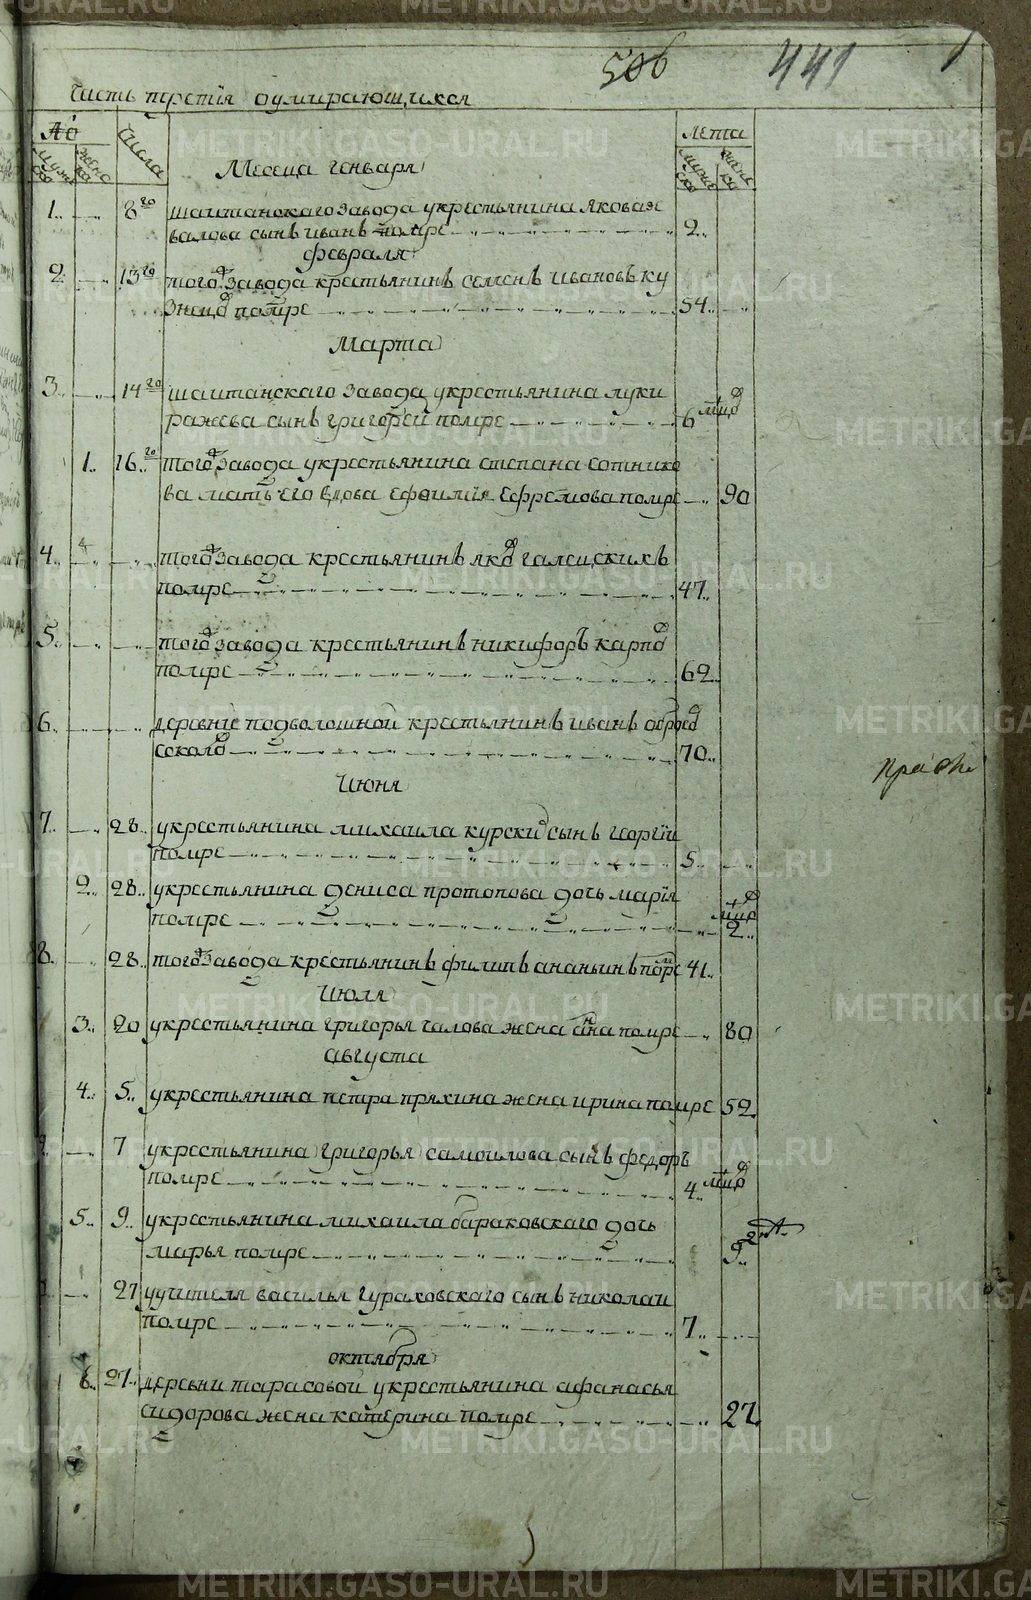 506 441
Часть третия о умирающихся
№ числа лета
муже ска женс ка муже ска женс ка
Месеца генваря
1. 8го шаитанскаго завода укрестьянина Якова
валова сынъ иванъ помре 2
февраля
2 13го того завода крестьянинъ семенъ ивановъ ку
знецо помре 54
Марта
3 14го шаитанскаго завода укрестьянина луки
ражева сынъ григорей помре 6 мцо
1. 16го того завода укрестьянина степана сотнико
ва мать его вдова Ефимия Ефремова помре 90
4. того завода крестьянинъ яко галецкихъ
помре 47
5. того завода крестьянинъ никифоръ карпо
помре 62
6. деревне подволошной крестьянинъ иванъ
соколо 70
Июня
7. 28 укрестьянина михаила курски сынъ георгии
помре 5
2. 28 укрестьянина дениса протопова дочь мария
помре мцо 2
8. 28 того завода крестьянинъ филипъ ананьинъ поре 41
Июля
3. 20 укрестьянина григорья чалова жена ана помре 80
августа
4. 5 укрестьянина петра пряхина жена ирина помре 52
7 укрестьянина григорья самоилова сынъ федоръ
помре 4 мцо
5. 9 укрестьянина михаила бараковскаго дочь
марья помре 9
27 уучителя василья гураковскаго сынъ николаи
помре 7
октября
6. 27 деревни тарасовой укрестьянина афанасья
сидорова жена катерина помре 27
METRIKI.GASO-URAL.RU